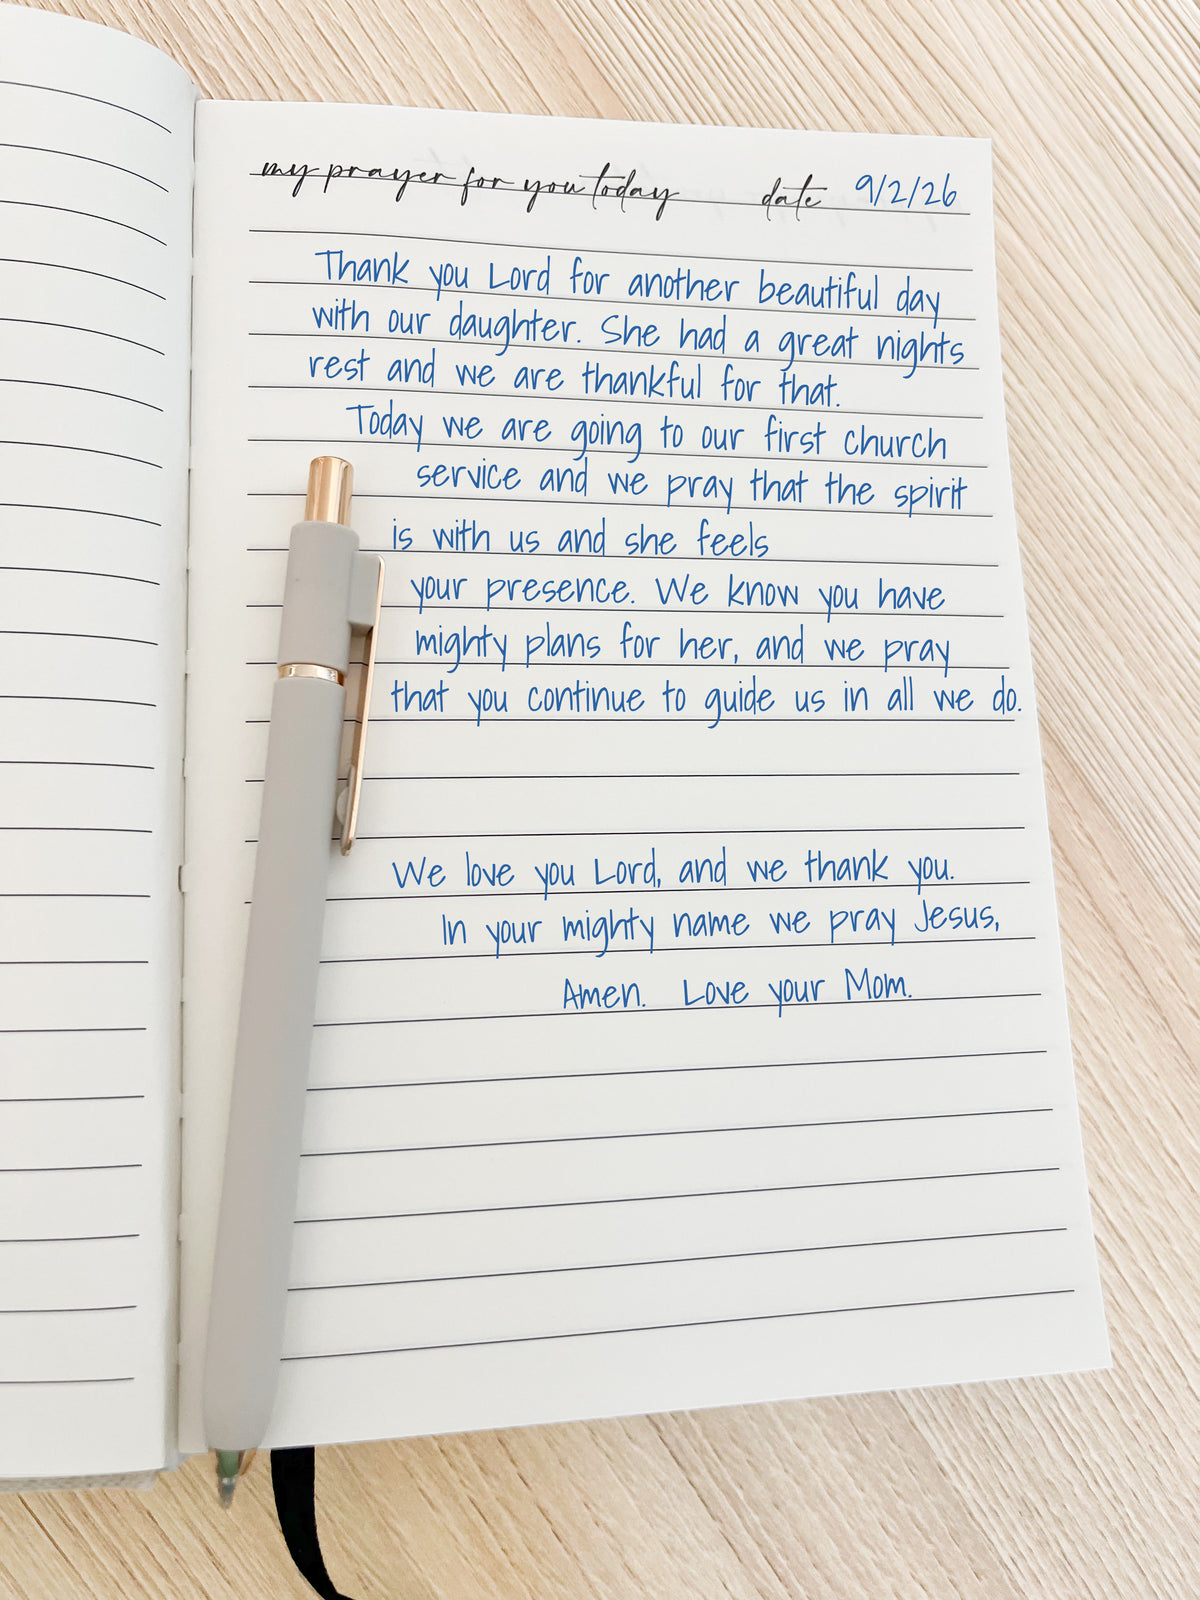 my prayer for you today date 9/2/26
Thank you Lord for another beautiful day
with our daughter. She had a great nights
rest and we are thankful for that.
Today we are going to our first church
service and we pray that the spirit
is with us and she feels
your presence. We know you have
mighty plans for her, and we pray
that you continue to guide us in all we do.
We love you Lord, and we thank you.
In your mighty name we pray Jesus,
Amen. Love your Mom.